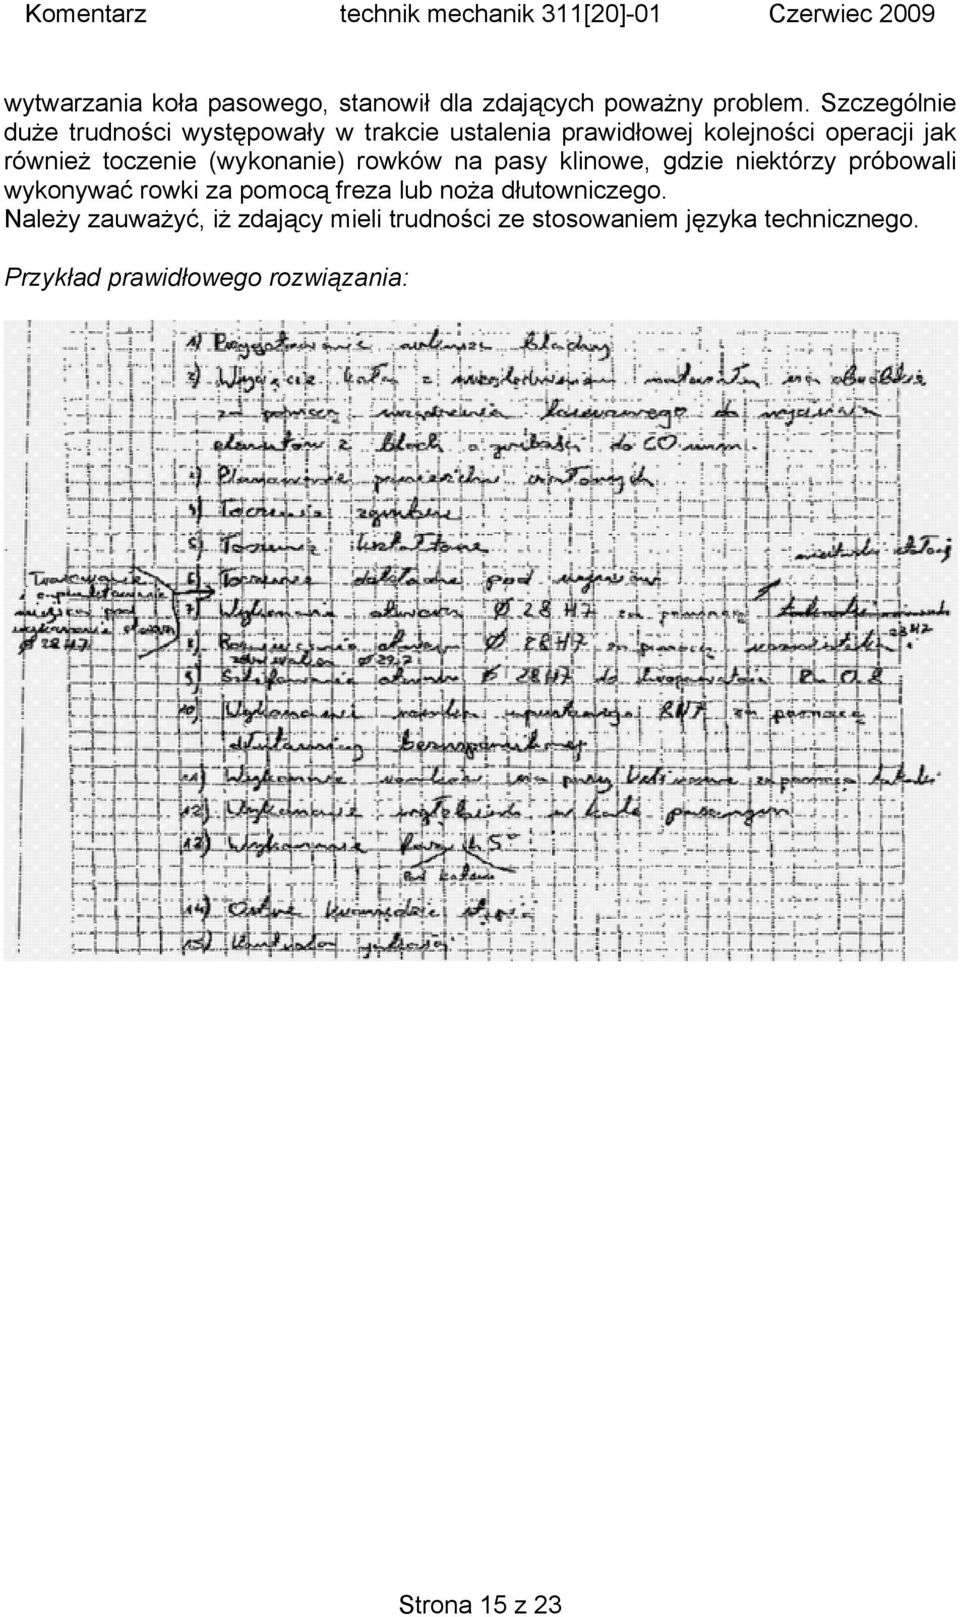 Komentarz technik mechanik 311[20]-01 Czerwiec 2009
wytwarzania koła pasowego, stanowił dla zdających poważny problem. Szczególnie
duże trudności występowały w trakcie ustalenia prawidłowej kolejności operacji jak
również toczenie (wykonanie) rowków na pasy klinowe, gdzie niektórzy próbowali
wykonywać rowki za pomocą freza lub noża dłutowniczego.
Należy zauważyć, iż zdający mieli trudności ze stosowaniem języka technicznego.
Przykład prawidłowego rozwiązania:
1) Przygotowanie arkusza blachy
2) Wycięcie koła z uwzględnieniem materiału na obróbkę
za pomocą urządzenia laserowego do wycinania
elementów z blach o grubości do 60 mm.
3) Planowanie powierzchni czołowych
4) Toczenie zgrubne
5) Toczenie kształtowe
6) Toczenie dokładne pod wymiar
Trasowanie
miejsca pod
wykonanie otworu
Ø 28H7
7) Wykonanie otworu Ø 28 H7 za pomocą
8) otworu Ø 28H7 za pomocą 28H7
9) Szlifowanie otworu Ø 28H7 do chropowatości
10) Wykonanie rowka wpustowego 8N7 za pomocą
dłutownicy
11) Wykonanie rowków na pasy klinowe za pomocą tokarki
12) Wykonanie wgłębienia w kole pasowym
13) Wykonanie 5°
pod kątem
14) Ostre krawędzie stępić
15) Kontrola jakości
Strona 15 z 23